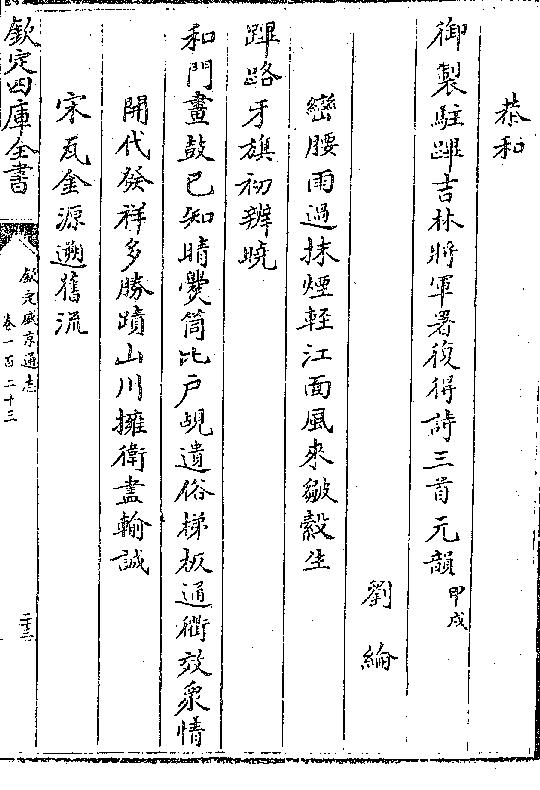 恭和
御製駐蹕吉林將軍署復得詩三首元韻甲戌
劉綸
巒腰雨過抹煙輕江面風來皺縠生
蹕路牙旗初辨曉
和門畫鼓已知晴爨筒比戶覘遺俗梯板通衢效衆情
開代發祥多勝蹟山川擁衛盡輸誠
宋瓦金源遡舊流
欽定四庫全書
欽定盛京通志
卷一百二十三
二十三